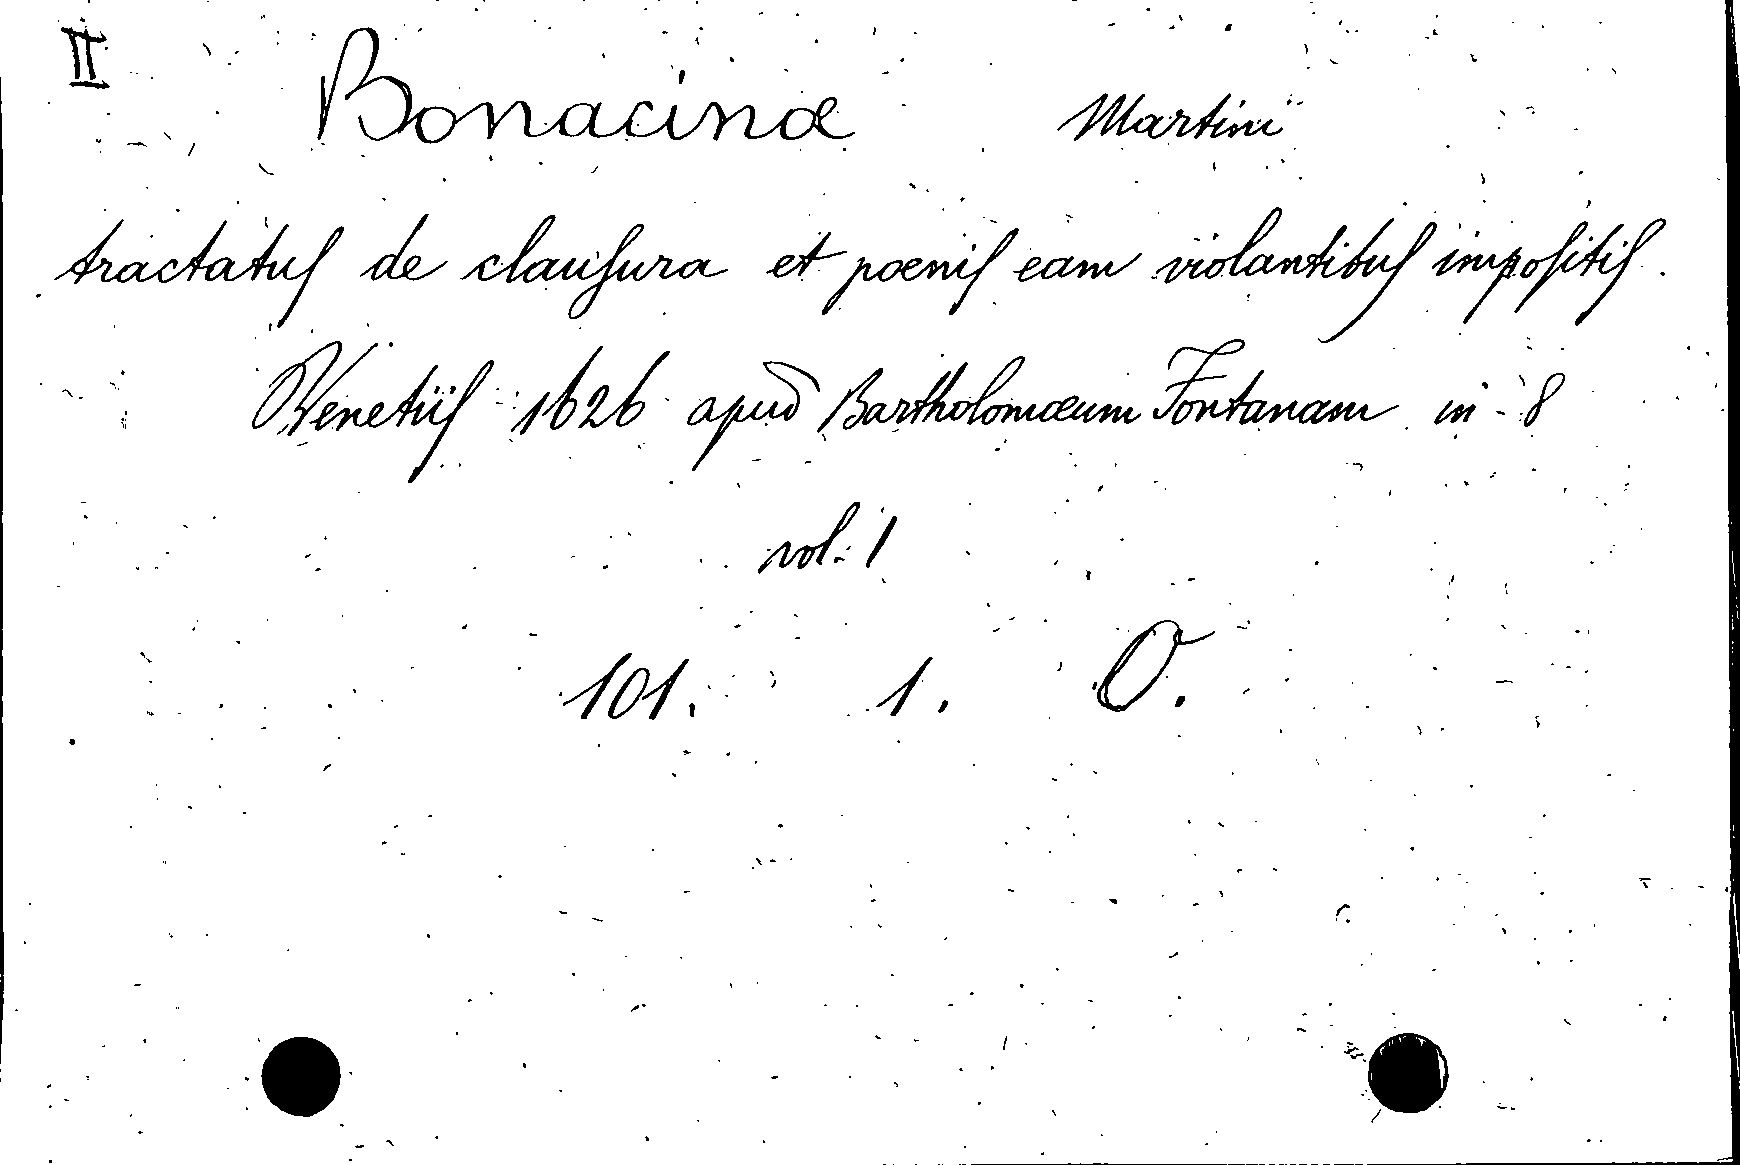 II Bonacinæ Martini
tractatus de clausura et poenis eam violantibus impositis.
Venetiis 1626 apud Bartholomæum Fontanam in-8
vol. 1
101. 1. O.